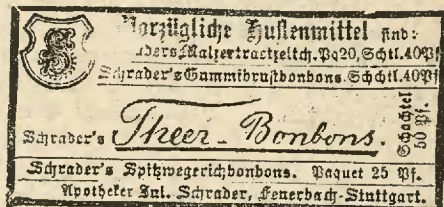 Vorzügliche Hustenmittel sind:
Malzextractzeltch. Pq 20, Schtl. 40 Pf
Schrader's Gummibrustbonbons. Schchtl. 40 Pf
Schrader's Theer-Bonbons. Schachtel 50 Pf.
Schrader's Spitzwegerichbonbons. Paquet 25 Pf.
Apotheker Jul. Schrader, Feuerbach-Stuttgart.